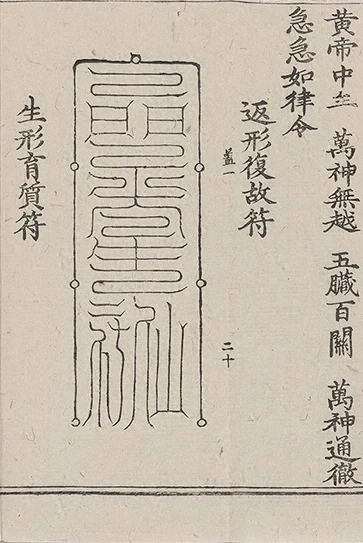 黄帝中主　萬神無越　五臟百關　萬神通徹
急急如律令
返形復故符
蓋一
二十
生形育質符